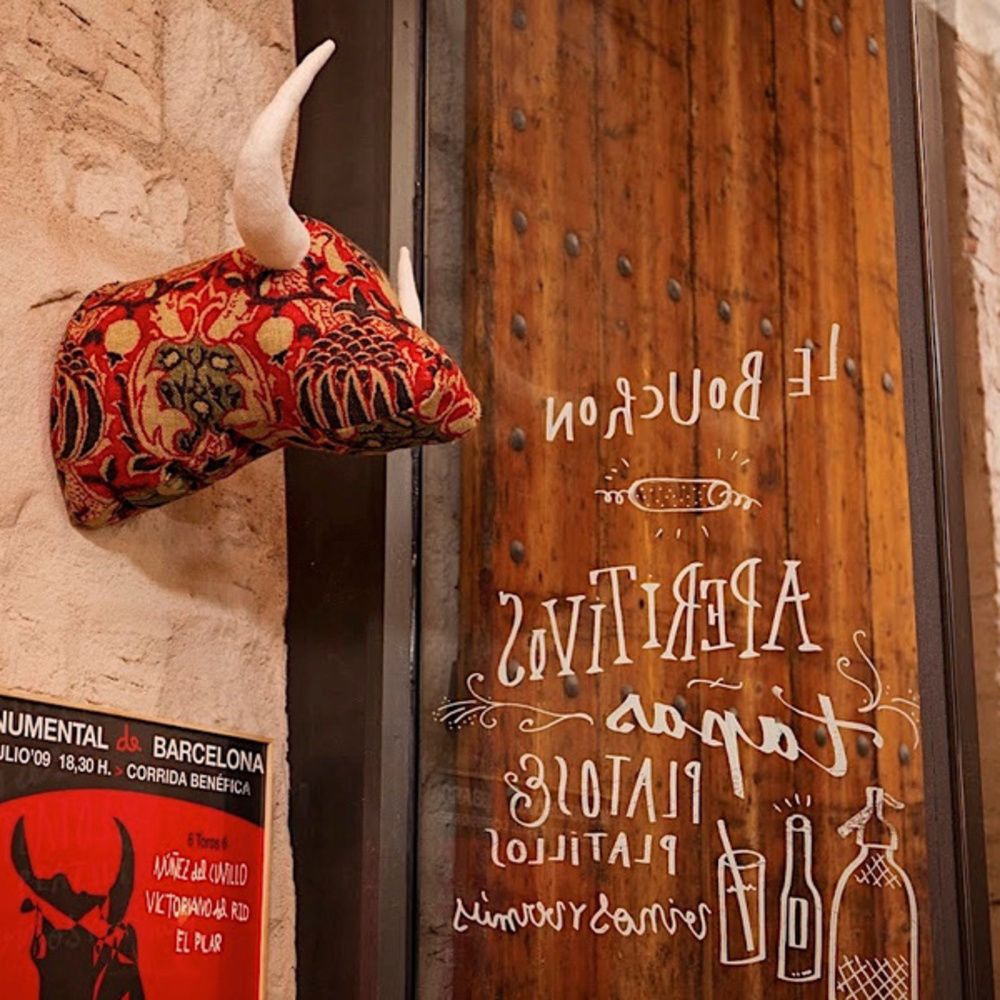 NUMENTAL de BARCELONA
ULIO'09 18,30 H. > CORRIDA BENÉFICA
6 Toros 6
NÚÑEZ del CUVILLO
VICTORIANO del RIO
EL PILAR
LE BOUCHON
APERITIVOS
tapas
PLATOS &
PLATILLOS
vinos y vermús